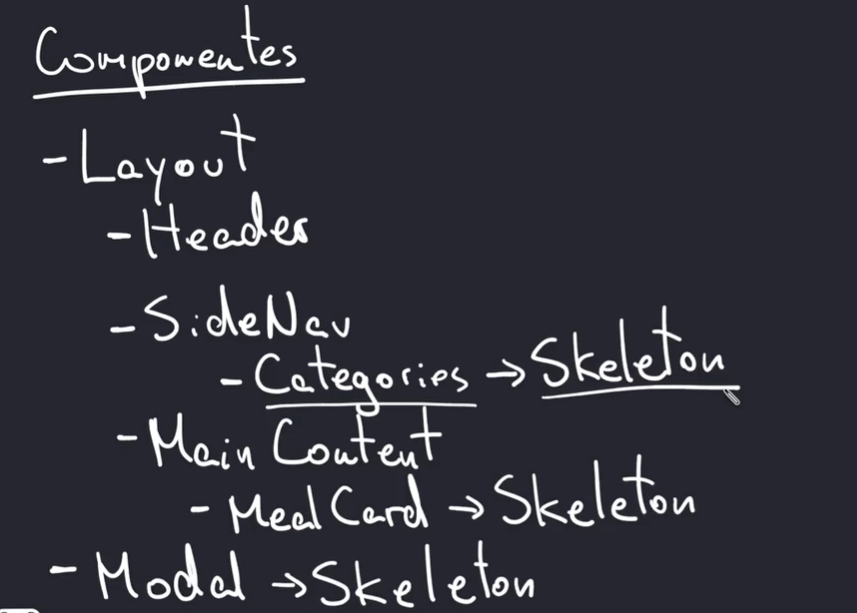 Componentes
- Layout
- Header
- SideNav
- Categories → Skeleton
- Main Content
- MealCard → Skeleton
- Modal → Skeleton